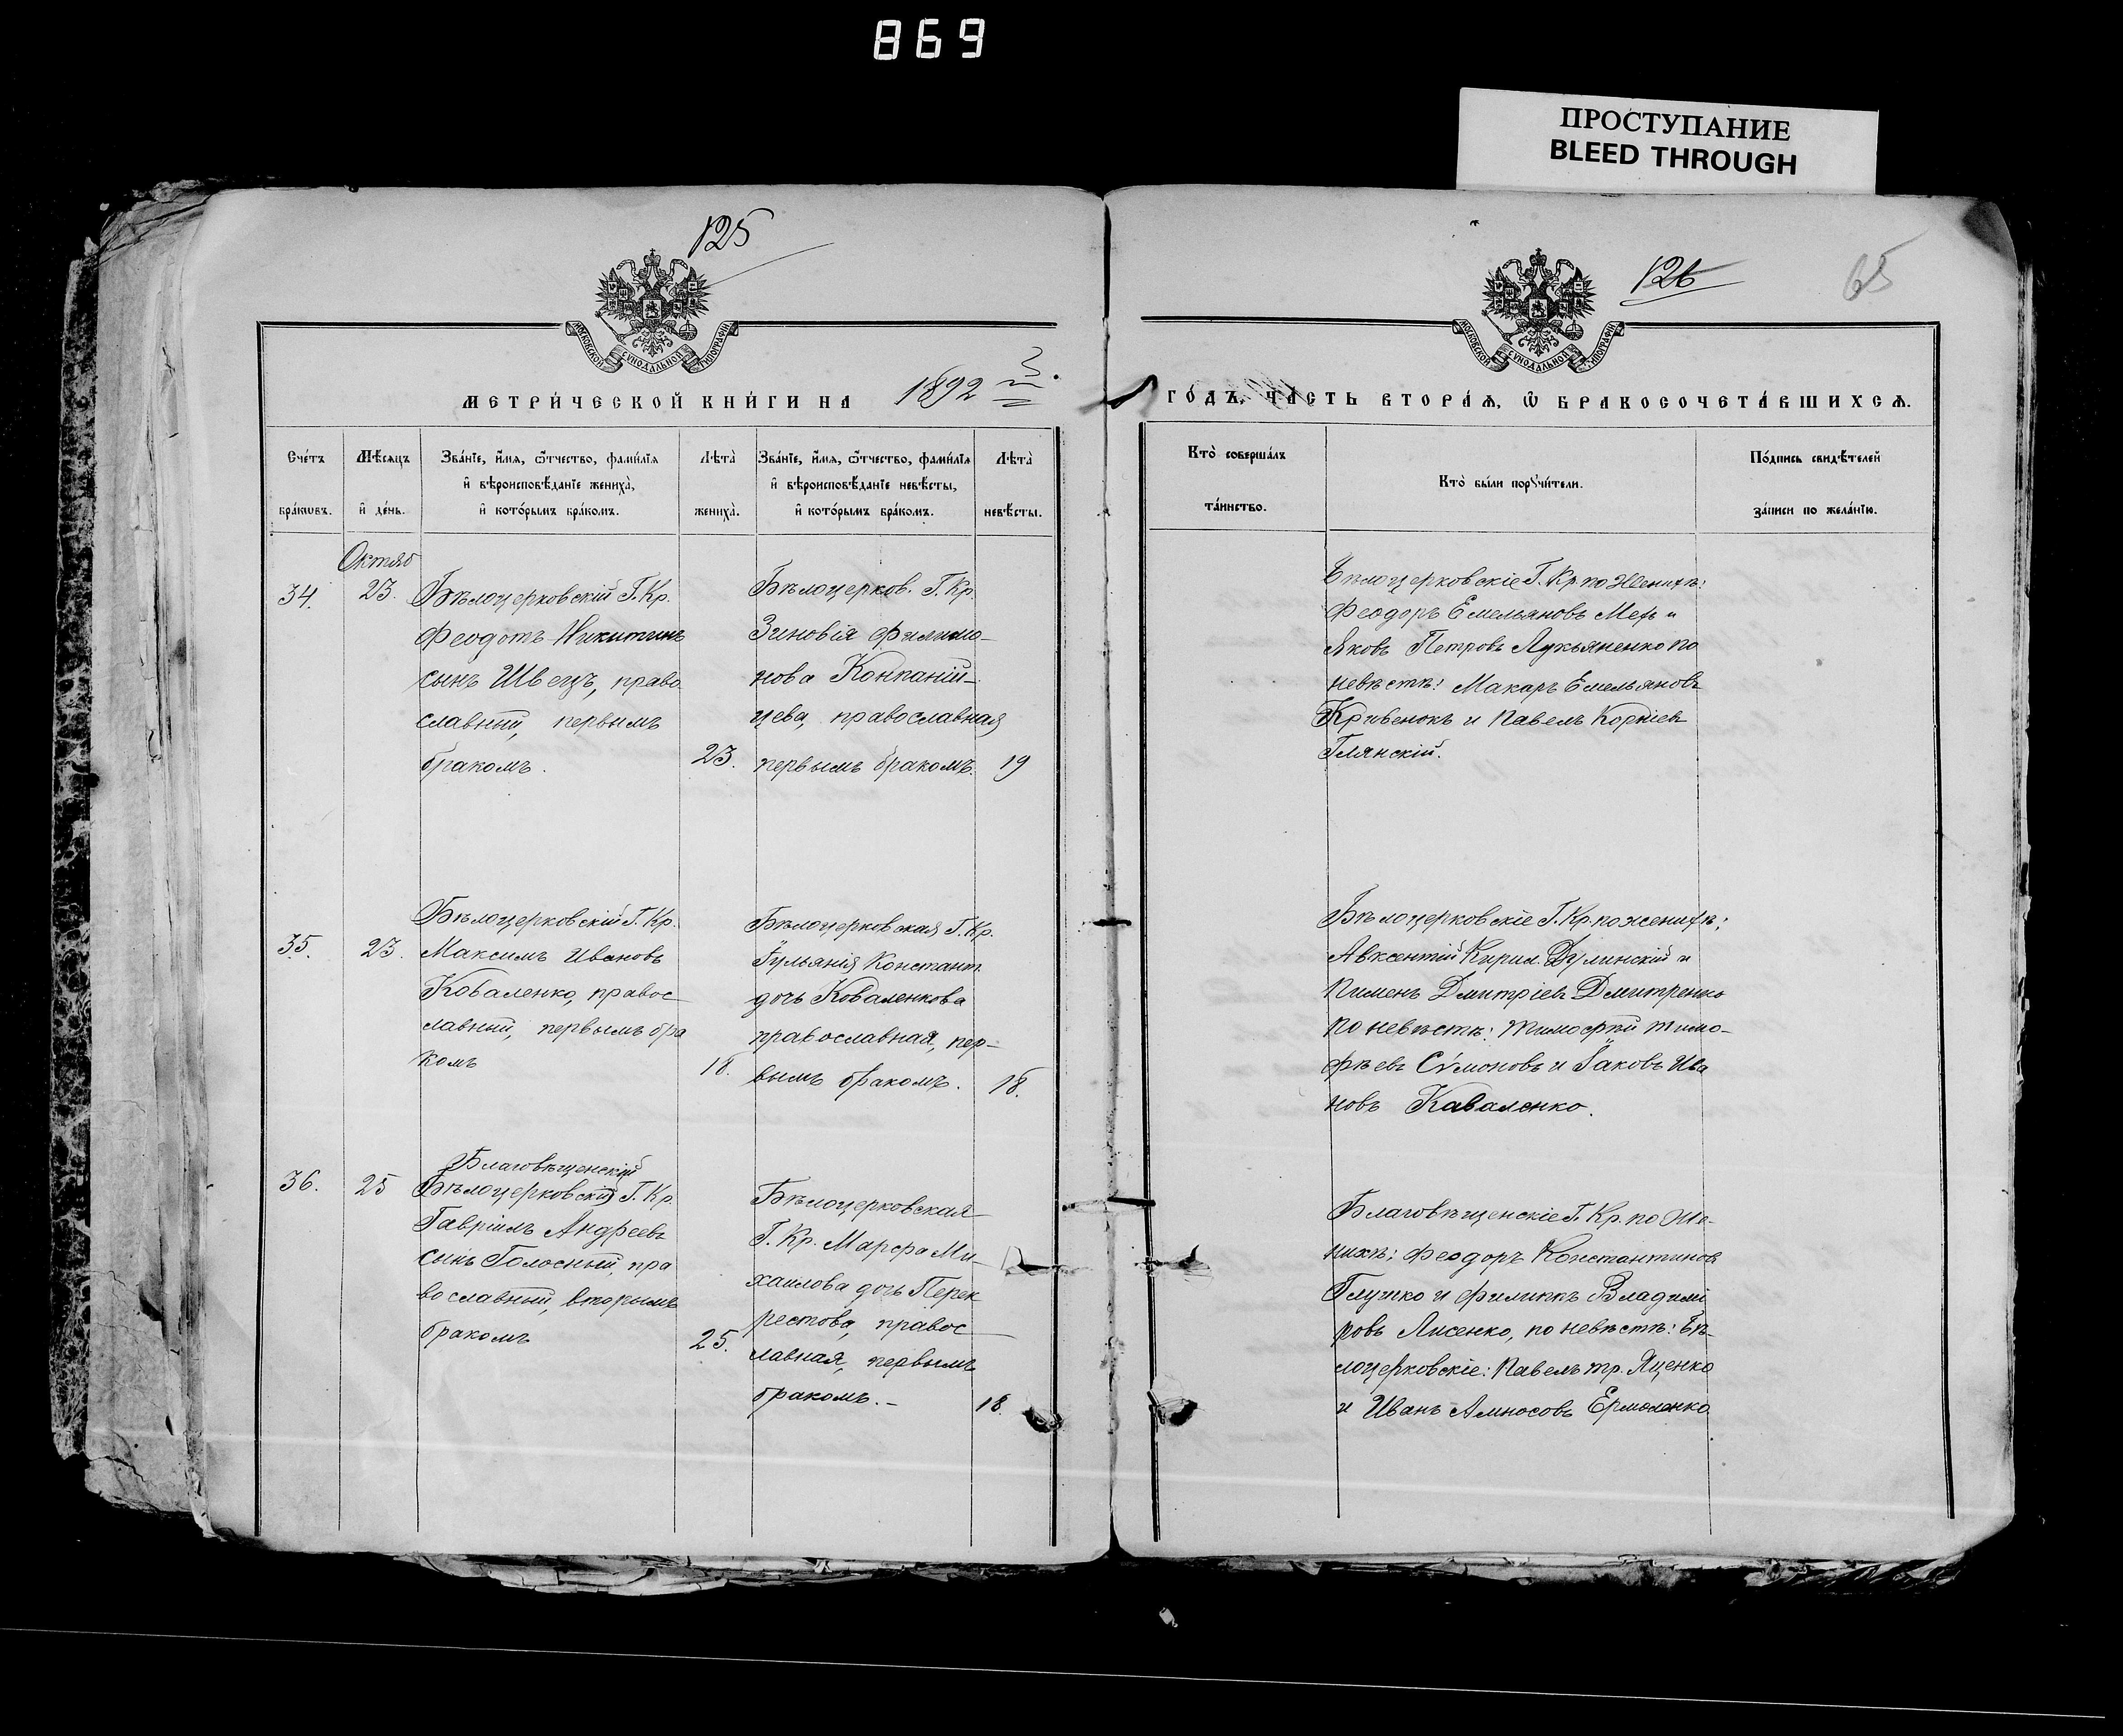 869
ПРОСТУПАНИЕ
BLEED THROUGH
125
126
65
МОСКОВСКОЙ СѴНОДАЛЬНОЙ ТИПОГРАФІИ
МОСКОВСКОЙ СѴНОДАЛЬНОЙ ТИПОГРАФІИ
МЕТРИ́ЧЕСКОЙ КНИ́ГИ НА 1892 3.
ГО́ДЪ, ЧА́СТЬ ВТОРА́Ѧ, Ѡ҆ БРАКОСОЧЕТА́ВШИХСѦ.
Сче́тъ бра́кѡвъ.
Мѣ́сяцъ и҆ де́нь.
Зва́нїе, и҆́мя, ѻ҆́тчество, фамѝлїя
и҆ вѣроисповѣ́данїе женихà,
и҆ кото́рымъ бра́комъ.
Лѣтà женихà.
Зва́нїе, и҆́мя, ѻ҆́тчество, фамѝлїя
и҆ вѣроисповѣ́данїе невѣ́сты,
и҆ кото́рымъ бра́комъ.
Лѣтà невѣ́сты.
Кто̀ совершáлъ
та́инство.
Кто̀ бы́ли порꙋчи́тели.
По́дпись свидѣ́телей
за́писи по жела́нїю.
Октяб
34.
23.
Бѣлоцерковскій Г. Кр.
Феодотъ Никитинъ
сынъ Швецъ, право
славный, первымъ
бракомъ.
23.
Бѣлоцерков. Г. Кр.
Зиновія Филимо-
нова Конпаній-
цева, православная
первымъ бракомъ.
19
Бѣлоцерковскіе Г. Кр. по Женихѣ:
Феодоръ Емельяновъ и
Яковъ Петровъ Лукьяненко по
невѣстѣ: Макаръ Емельяновъ
Кривенокъ и Павелъ Корніевъ
Глянскій.
35.
23.
Бѣлоцерковскій Г. Кр.
Максимъ Ивановъ
Коваленко, правос
лавный, первымъ бра
комъ
18.
Бѣлоцерковская Г. Кр.
Іульянія Констант.
дочь Коваленкова
православная, пер-
вымъ бракомъ.
18.
Бѣлоцерковскіе Г. Кр. по женихѣ;
Авксентій Кирил. Дулинскій и
Пименъ Дмитріевъ Дмитренко
по невѣстѣ: Тимофѣй Тимо-
фѣевъ Сѵмоновъ и Іаковъ Ива
новъ Каваленко.
36.
25
Благовѣщенскій
Бѣлоцерковскій Г. Кр.
Гавріилъ Андреевъ
сынъ Голосный, пра
вославный, вторымъ
бракомъ
25.
Бѣлоцерковская
Г. Кр. Марфа Ми-
хаилова дочь Перек
рестова, правос
лавная, первымъ
бракомъ.-
18.
Благовѣщенскіе Г. Кр. по Же-
нихѣ; Феодоръ Константиновъ
Глушко и Филиппъ Владими
ровъ Лисенко, по невѣстѣ: Бѣ-
лоцерковскіе: Павелъ тр. Яценко
и Иванъ Амносовъ Ермоленко.